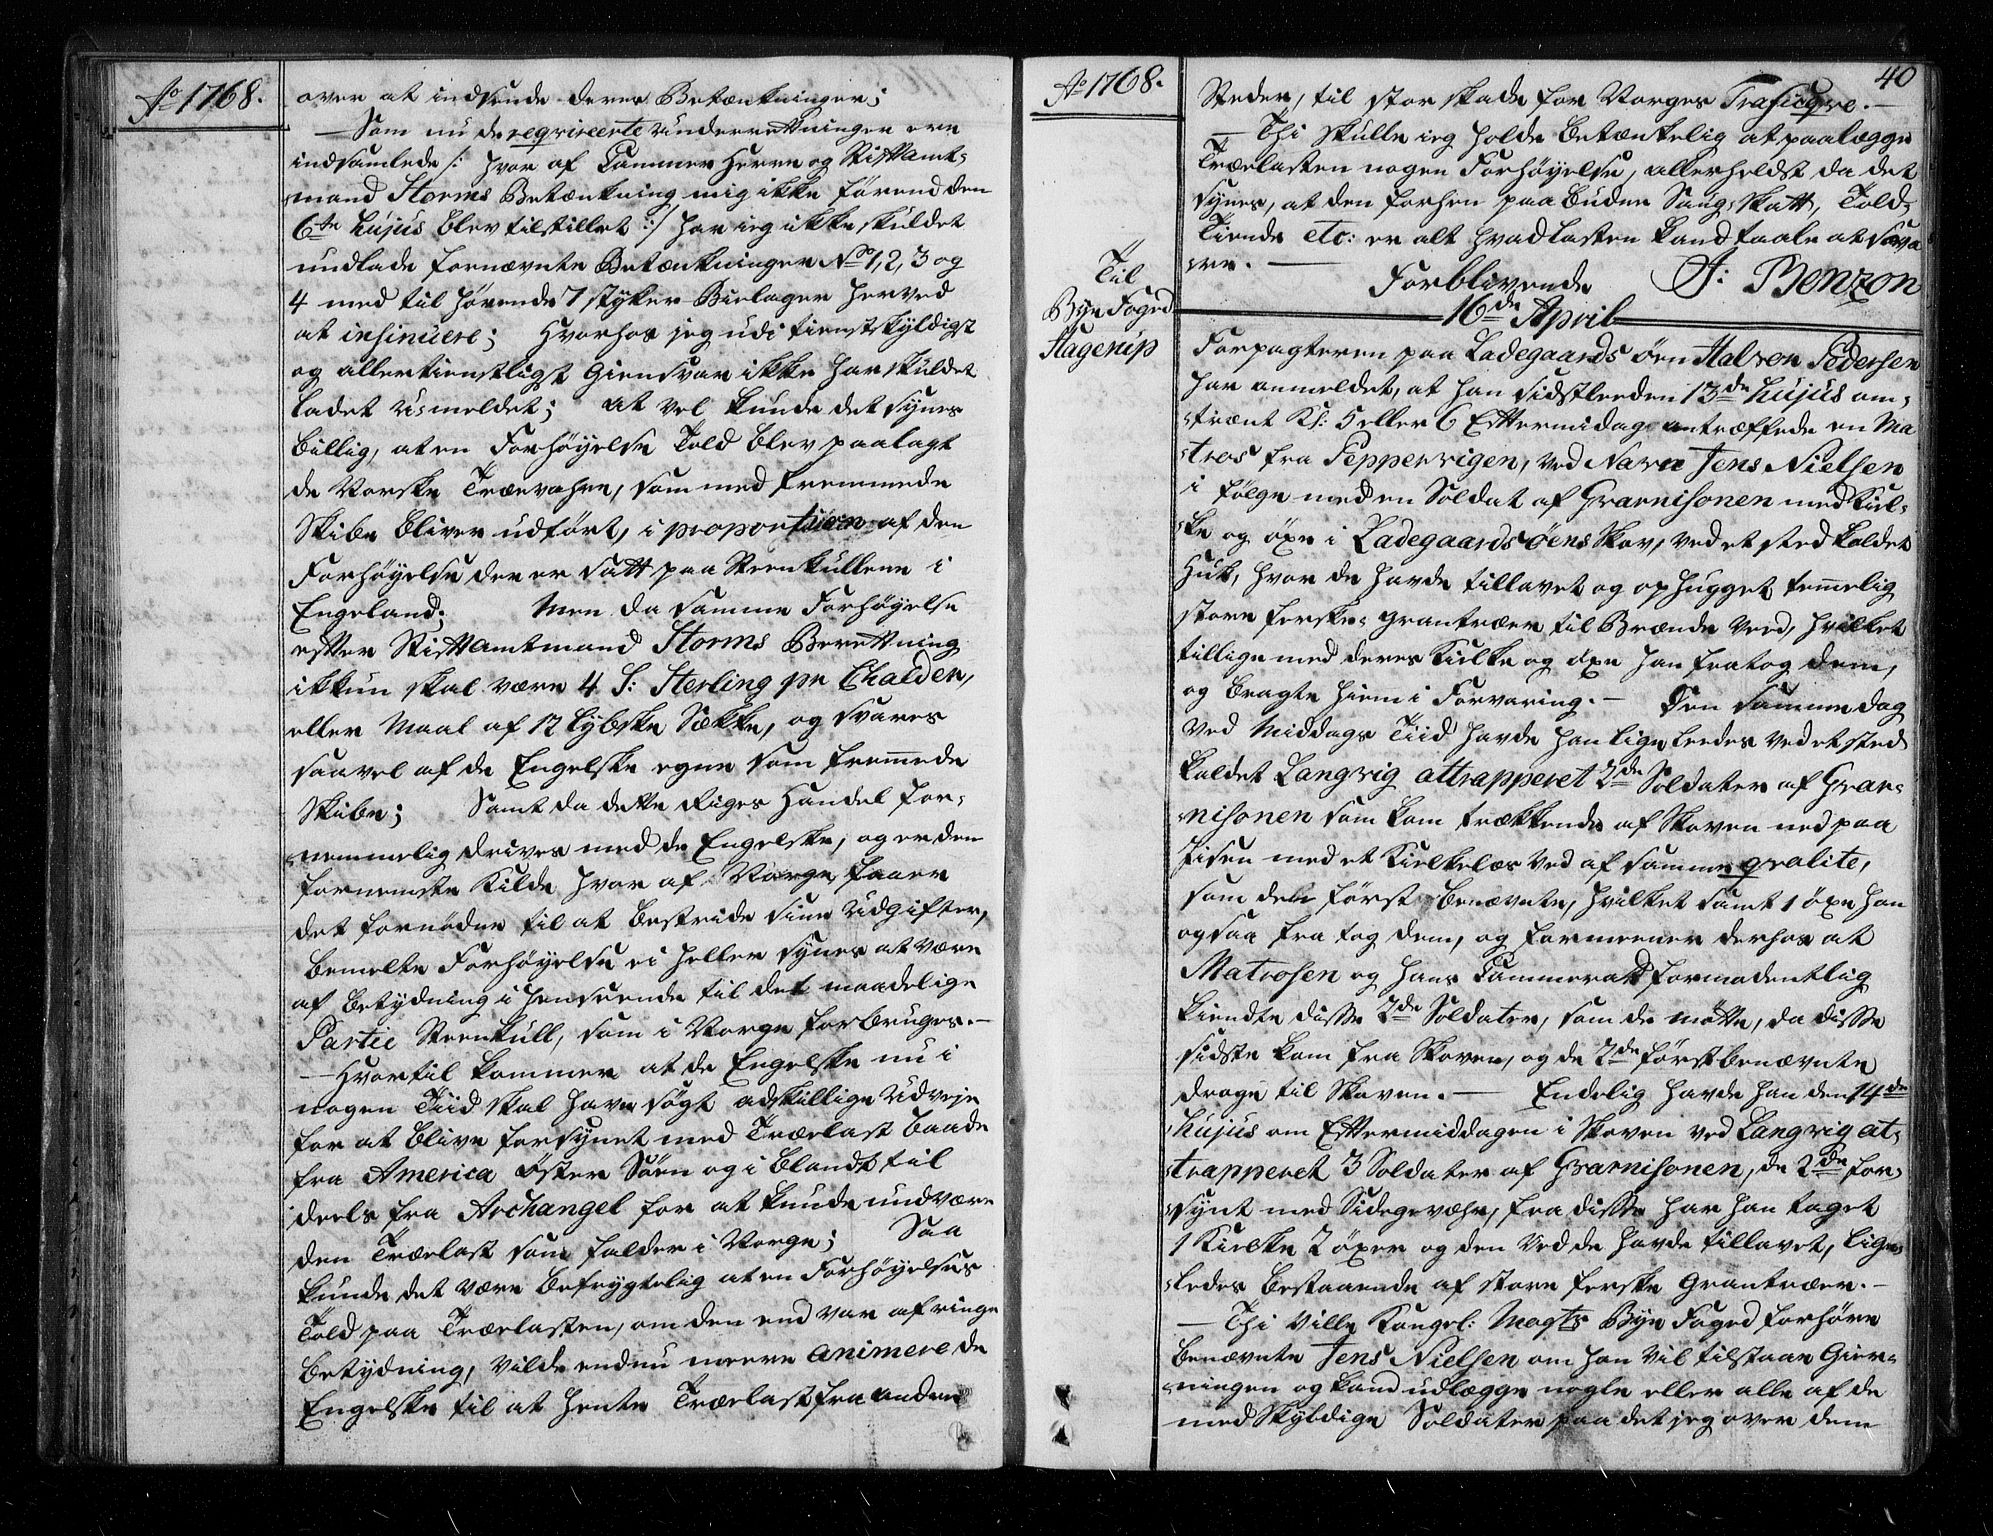 Ao 1768.
over at indsende deres Betænkninger;
— Som nu de reqvireerte Underrettninger ere
indsamlede /: hvor af Cammer Herre og Stiftamt-
mand Storms Betænkning mig ikke førend den
6te hujus blev tilstillet :/ har ieg ikke skuldet
undlade fornævnte Betænkninger No 1, 2, 3 og
4 med til hørende 7 styker Bielager herved
at insinuere; Hvorhos jeg udi tienstskyldigst
og allertienstligst Giensvar ikke har skuldet
ladet u-meldet; at vel kunde det synes
billig, at en Forhøyelse Told blev paalagt
de Norske Trævahre, som med fremmede
Skibe bliver udført, i proportion af den
Forhøyelse der er satt paa Steenkullene i
Engeland; Men da samme Forhøyelse
efter Stiftamtmand Storms Berettning
ikkun skal være 4 S: Sterling pr Chalden,
eller Maal af 12 Lybske Sække, og svares
saavel af de Engelske egne som fremmede
Skibe; Samt da dette Riges Handel for-
nemmelig drives med de Engelske, og er den
fornemste Kilde hvor af Norge faaer
det fornødne til at bestride sine Udgifter,
bemelte Forhøyelse ei heller synes at være
af betydning i henseende til det maadelige
Partie Steenkull, som i Norge forbruges. —
— Hvortil kommer at de Engelske nu i
nogen Tiid skal have søgt adskillige Udveje
for at blive forsynet med Trælast baade
fra America Øster Søen og i blandt til
deels fra Archangel for at kunde undvære
den Trælast som falder i Norge; Saa
kunde det være befrygtelig at en Forhøyelses
Told paa Trælasten, om den end var af ringe
betydning, vilde endnu meere animere de
Engelske til at hente Trælast fra andre
Ao 1768.
40
Steder, til stor skade for Norges Trafiqve. —
— Thi skulle ieg holde betænkelig at paalægge
Trælasten nogen Forhøyelse, allerhelst da det
synes, at den forhen paa budne Saug-skatt, Told-
Tiende etc: er alt hvad lasten kand taale at sva
re. —
Forblivende J: Benzon
16de April
Til
Bye Foged
Hagerup
Forpagteren paa Ladegaards øen Halvor Pedersen
har anmeldet, at han sidstleeden 13de hujus om-
trænt Kl: 5 eller 6 Eftermidag antræffede en Ma
tros fra Pepperviigen, ved Navn Jens Nielsen
i følge med en Soldat af Guarnisonen med Kiel-
ke og øxe i Ladegaards øens Skov, ved et sted kaldet
Huk, hvor de havde tillavet og ophugget temmelig
store ferske Grantræer til Brænde Ved, hvilket
tillige med deres Kielke og øxe han fratog dem,
og bragte hiem i Forvaring. — Den samme dag
ved Middags Tiid havde han ligeleedes ved et sted
kaldet Langvig attrapperet 2de Soldater af Guar-
nisonen som kom trækkende af Skoven ned paa
Jisen med et Kielkelæs Ved af samme qvalite,
som den først benævnte, hvilket samt 1 øxe han
ogsaa fra tog dem, og formeener derhos at
Matrosen og hans Cammerat formodentlig
kiendte disse 2de Soldater, som de møtte, da disse
sidste kom fra Skoven, og de 2de først benævnte
droge til Skoven. — Endelig havde han den 14de
hujus om Eftermiddagen i Skoven ved Langvig at-
trapperet 3 Soldater af Guarnisonen, de 2de for-
synt med Sidegevæhr, fra disse har han taget
1 Kielke 2 øxer og den Ved de havde tillavet, lige-
ledes bestaaende af store ferske Grantræer. —
— Thi ville Kongel: Mayts Bye Foged forhøre
benævnte Jens Nielsen om han vil tilstaae Gier-
ningen og kand udlægge nogle eller alle af de
med skyldige Soldater paa det jeg over dem